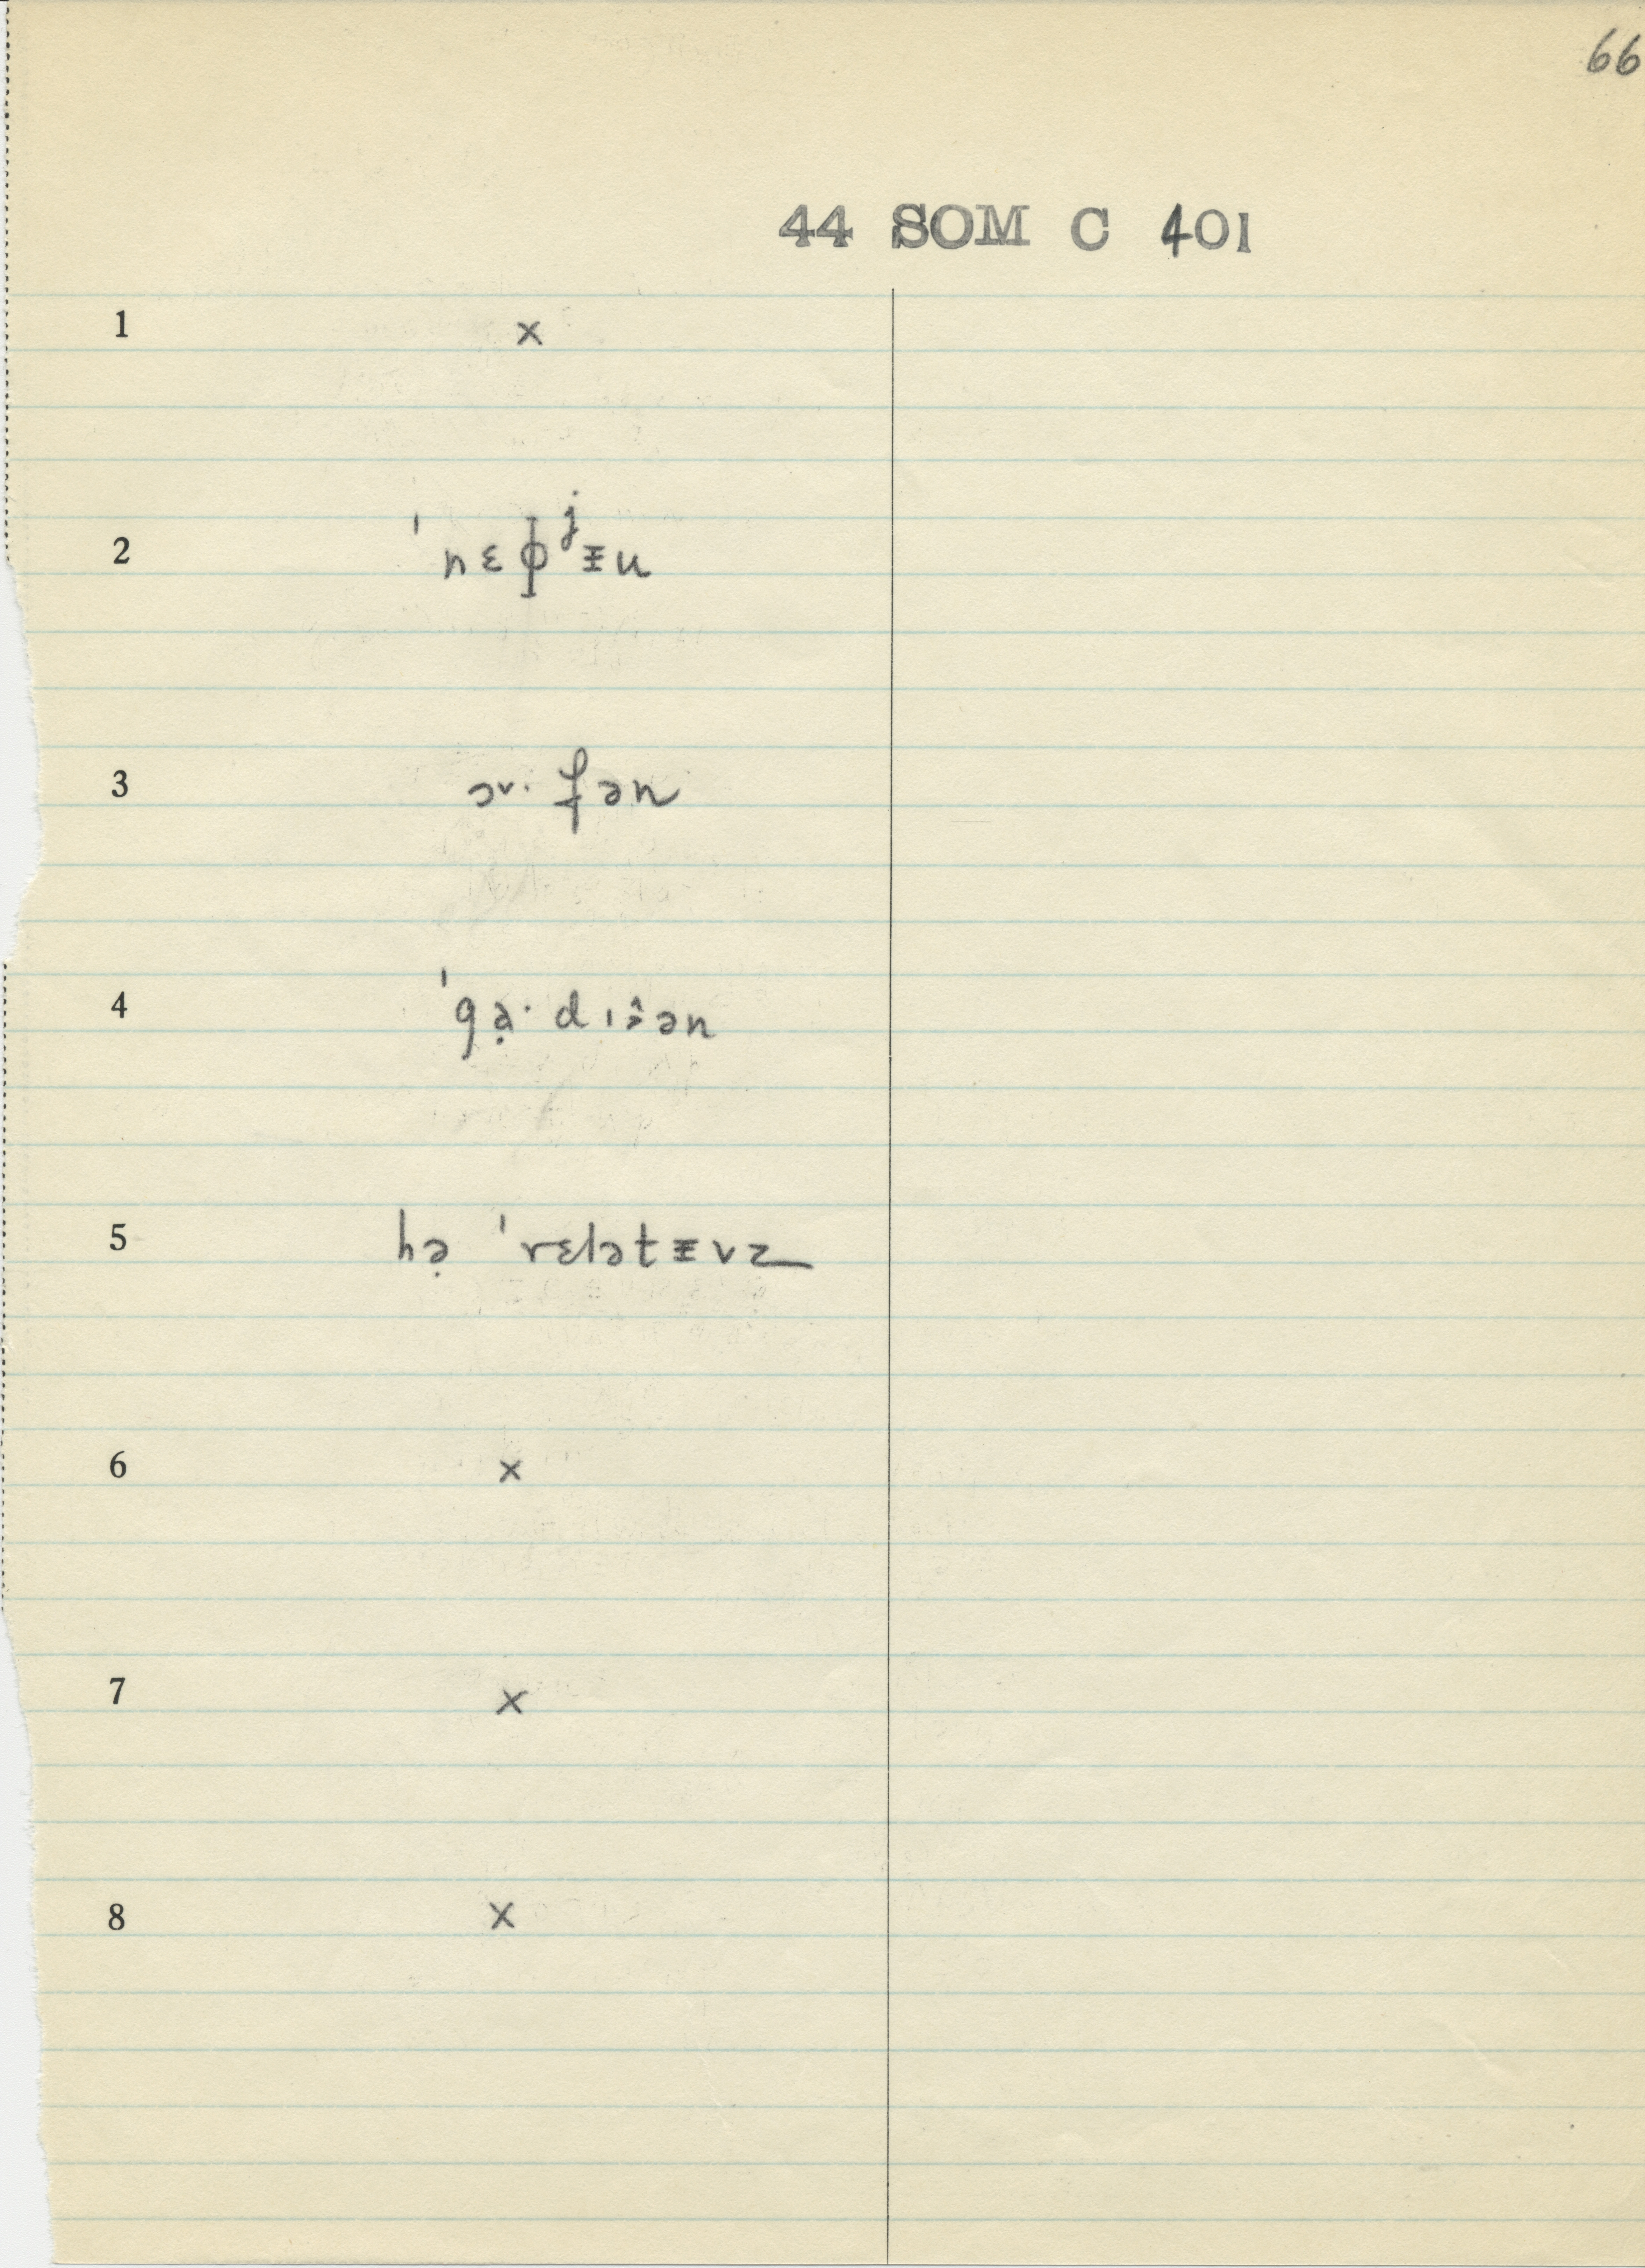 66
44 SOM C 401
1 ×
2 ˈnɛɸʲᵻu
3 ɔ˅· fən
4 ˈgạ· dɪɚ̂ən
5 hə̣ ˈrɛlətᵻvz
6 ×
7 ×
8 ×